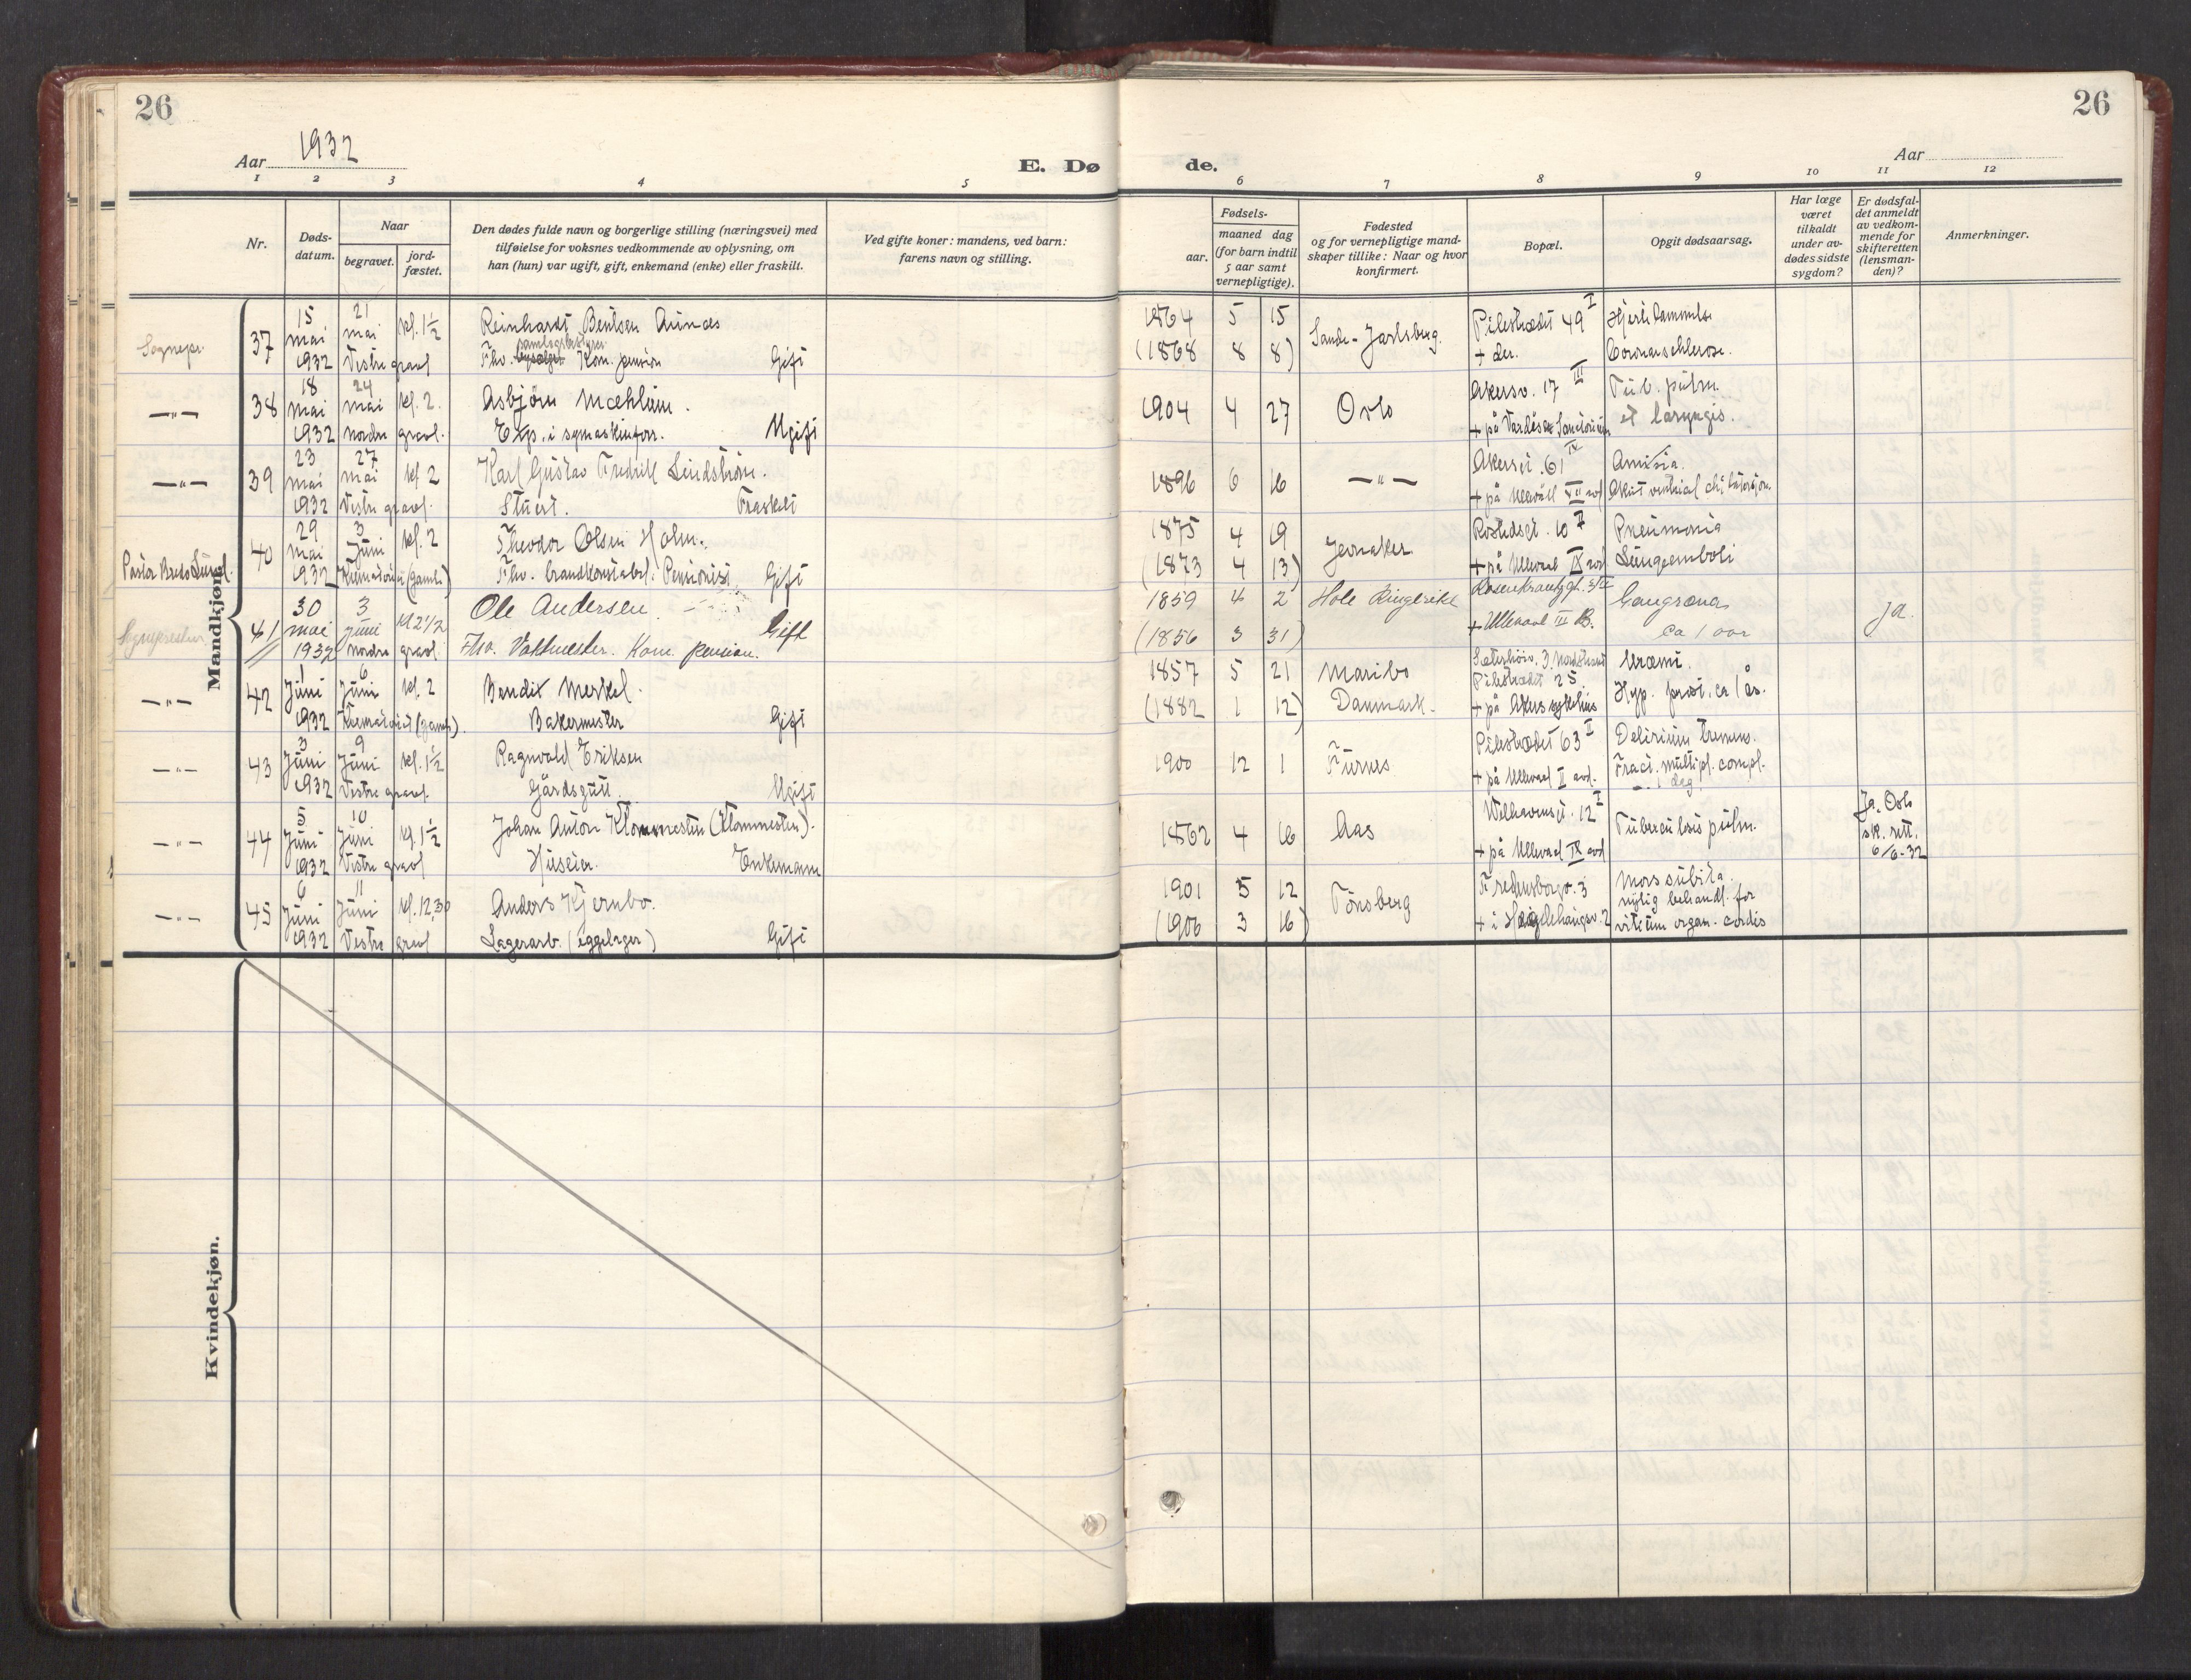 26
26
Aar 1932
E. Dø
de.
Aar
1 2 3 4 5 6 7 8 9 10 11 12
Nr.
Døds-
datum.
Naar
begravet.
jord-
fæstet.
Den dødes fulde navn og borgerlige stilling (næringsvei) med
tilføielse for voksnes vedkommende av oplysning, om
han (hun) var ugift, gift, enkemand (enke) eller fraskilt.
Ved gifte koner: mandens, ved barn:
farens navn og stilling.
Fødsels-
aar.
maaned dag
(for barn indtil
5 aar samt
vernepligtige).
Fødested
og for vernepligtige mand-
skaper tillike: Naar og hvor
konfirmert.
Bopæl.
Opgit dødsaarsag.
Har læge
været
tilkaldt
under av-
dødes sidste
sygdom?
Er dødsfal-
det anmeldt
av vedkom-
mende for
skifteretten
(lensman-
den)?
Anmerkninger.
Mandkjøn.
Sognepr. 37 15 mai 1932 21 mai Vestre gravl kl. 1½
Reinhardt Bentsen
samlagsbestyrer
Fhv. Kom. pension Gift
1864 5 15
(1868 8 8)
Sande - Jarlsberg.
Pilestrædet 49 I
+ der.
-"- 38 18 mai 1932 24 mai nordre gravl. kl. 2.
Asbjørn Mæhlum.
Exp. i symaskinforr. Ugift
1904 4 27 Oslo
Akersv. 17 III
+ på Vardåsen Sanatorium
Tub. pulm.
et laryngis.
-"- 39 23 mai 1932 27 mai Vestre gravl. kl 2
Karl Gustav Fredrik Lindstrøm.
Stuert. Fraskilt
1896 6 16 -"-
Akersgt. 61 IV
+ på Ullevål avd
Akut
Pastor Bredo Lund. 40 29 mai 1932 3 Juni Krematoriet (gamle) kl. 2
Theodor Olsen Holm.
Fhv. brandkonstabel. Pensionist Gift
1875 4 19
(1873 4 13)
Jevnaker
Rostedsgt. 10 I
+ på Ullevaal IX avd
Pneumonia
Lungeemboli
Sognepresten 41 30 mai 1932 3 juni nordre gravl. kl 2 1/2
Ole Andersen.
Fhv. Vaktmester. Kom. pension. Gift
1859 4 2
(1856 3 31)
Hole Ringerike
Rosenkrantzgt.
+ Ullevaal III B.
Gangræna
ca 1 aar
ja.
-"- 42 1 Juni 1932 6 Juni Krematoriet (gamle). kl. 2
Bendix Merkel.
Bakermester Gift
1857 5 21
(1882 1 12)
Maribo
Danmark.
Sæterhöiv. 3. Nordstrand
Pilestrædet 25.
+ på Akers sykehus
Uræmi.
Hyp. prost. ca 1 år.
-"- 43 3 Juni 1932 9 Juni Vestre gravl. kl. 1½
Ragnvald Eriksen
Gårdsgutt. Ugift
1900 12 1 Furnes
Pilestrædet 63 I
+ på Ullevaal II avd.
Delirium tremens.
Fract. multipl. compl.
1 dag
-"- 44 5 Juni 1932 10 Juni Vestre gravl kl. 1½
Johan Anton Klommesten (Klommesten).
Huseier. Enkemann
1862 4 16 Aas
Welhavensgt. 12 I
+ på Ullevaal IX avd
Tuberculosis pulm.
Ja. Oslo
sk. rett.
6/6-32
-"- 45 6 Juni 1932 11 Juni Vestre gravl kl. 12,30
Anders Kjernbo.
Lagerarb. (eggelager) Gift
1901 5 12
(1906 3 16)
Tönsberg
Fredensborgv. 3
+ i Hægdehaugsv. 2
Mors subita.
nylig behandl. for
vitium organ. cordis
Kvindekjøn.